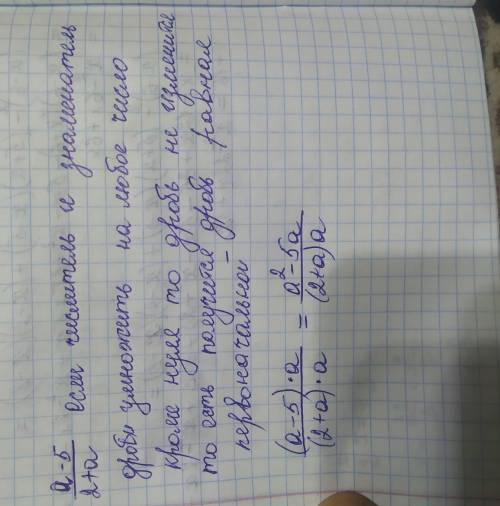 a-5/2+a если числитель и знаменатель
дроби умножить на любое число
кроме нуля то дробь не изменится
то есть получится дробь равная
первоначальной
(a-5)·a/(2+a)·a = a²-5a/(2+a)a